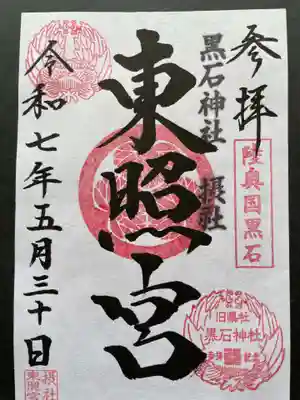 参拝
陸奥国黒石
黒石神社 摂社
東照宮
令和七年五月三十日
旧県社
黒石神社
参拝記念
摂社
東照宮